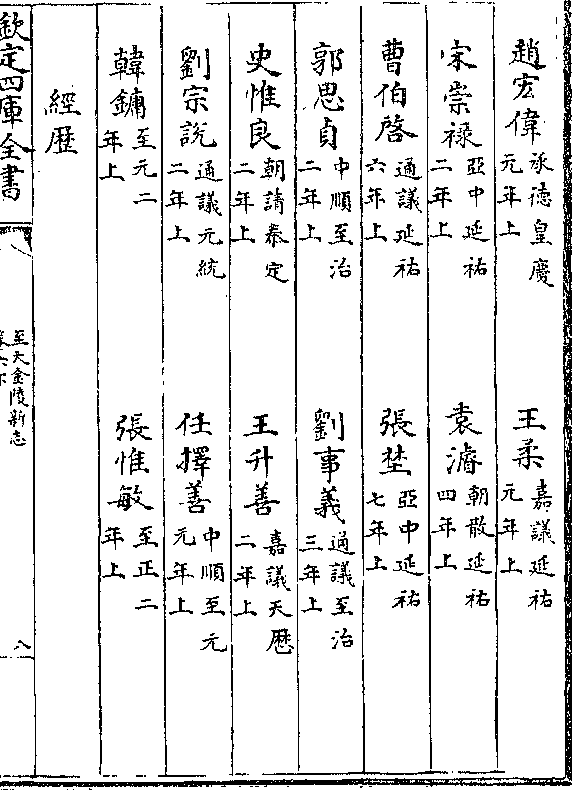 趙宏偉承德皇慶元年上 王柔嘉議延祐元年上
宋崇禄亞中延祐二年上 袁濬朝散延祐四年上
曹伯啓通議延祐六年上 張埜亞中延祐七年上
郭思貞中順至治二年上 劉事義通議至治三年上
史惟良朝請泰定二年上 王升善嘉議天歷二年上
劉宗説通議元統二年上 任擇善中順至元元年上
韓鏞至元二年上 張惟敏至正二年上
經歴
欽定四庫全書
至大金陵新志
八